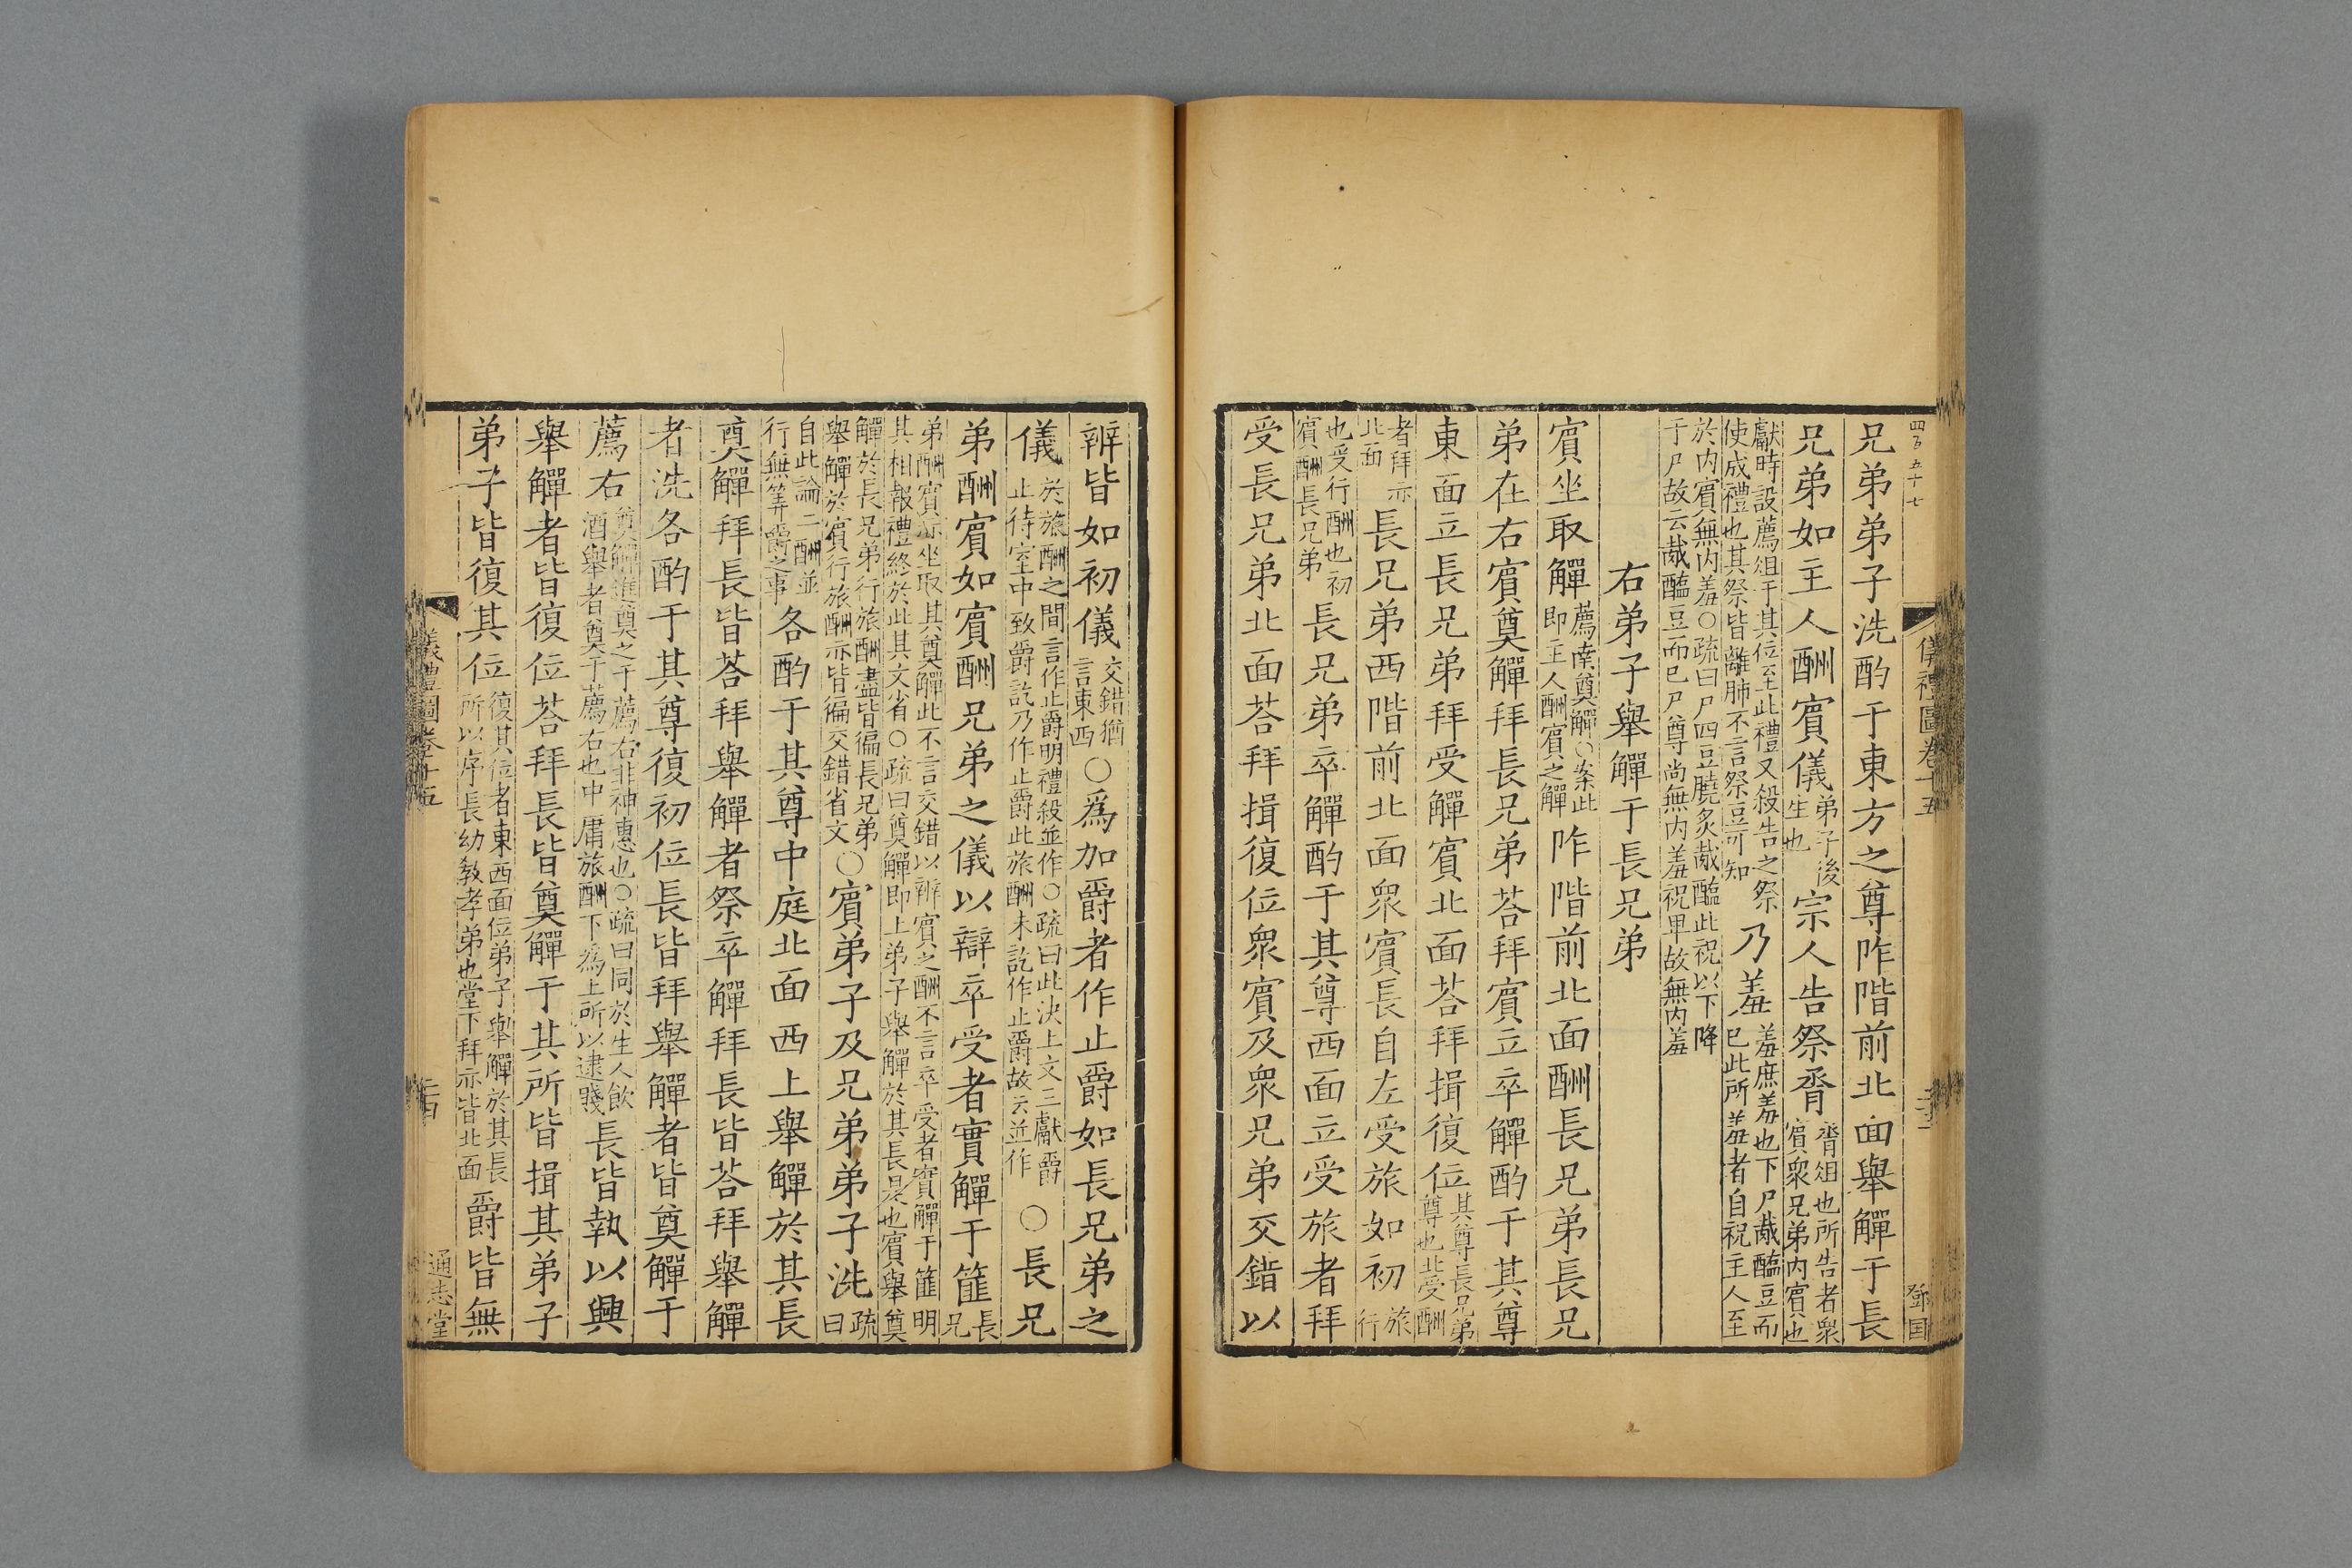 四百五十七
儀禮圖卷十五
鄧国
兄弟弟子洗酌于東方之尊阼階前北面舉觶于長
兄弟如主人酬賔儀弟子後生也宗人告祭脀脀俎也所告者衆賔衆兄弟内賔也
獻時設薦俎于其位至此禮又殺告之祭使成禮也其祭皆離肺不言祭豆可知乃羞羞庶羞也下尸胾醢豆而已此所羞者自祝主人至
於内賔無内羞○疏曰尸四豆膮炙胾醢此祝以下降于尸故云胾醢豆而已尸尊尚無内羞祝卑故無内羞
右弟子舉觶于長兄弟
賔坐取觶薦南奠觶○案此即主人酬賔之觶阼階前北面酬長兄弟長兄
弟在右賔奠觶拜長兄弟荅拜賔立卒觶酌于其尊
東面立長兄弟拜受觶賔北面荅拜揖復位其尊長兄弟尊也此受酬
者拜亦北面長兄弟西階前北面衆賔長自左受旅如初旅行
也受行酬也初賔酬長兄弟長兄弟卒觶酌于其尊西面立受旅者拜
受長兄弟北面荅拜揖復位衆賔及衆兄弟交錯以
辨皆如初儀交錯猶言東西○爲加爵者作止爵如長兄弟之
儀於旅酬之間言作止爵明禮殺並作○疏曰此決上文三獻爵止待室中致爵訖乃作止爵此旅酬未訖作止爵故云並作○長兄
弟酬賔如賔酬兄弟之儀以辯卒受者實觶于篚長兄
弟酬賔亦坐取其奠觶此不言交錯以辨賔之酬不言卒受者實觶于篚明其相報禮終於此其文省○疏曰奠觶即上弟子舉觶於其長是也賔舉奠
觶於長兄弟行旅酬盡皆徧長兄弟舉觶於賔行旅酬亦皆徧交錯省文○賔弟子及兄弟弟子洗疏曰
自此論二酬並行無筭爵之事各酌于其尊中庭北面西上舉觶於其長
奠觶拜長皆荅拜舉觶者祭卒觶拜長皆荅拜舉觶
者洗各酌于其尊復初位長皆拜舉觶者皆奠觶于
薦右奠觶進奠之于薦右非神惠也○疏曰同於生人飲酒舉者奠于薦右也中庸旅酬下爲上所以逮賤長皆執以興
舉觶者皆復位荅拜長皆奠觶于其所皆揖其弟子
弟子皆復其位復其位者東西面位弟子舉觶於其長所以序長幼教孝弟也堂下拜亦皆北面爵皆無
儀禮圖卷十五
通志堂